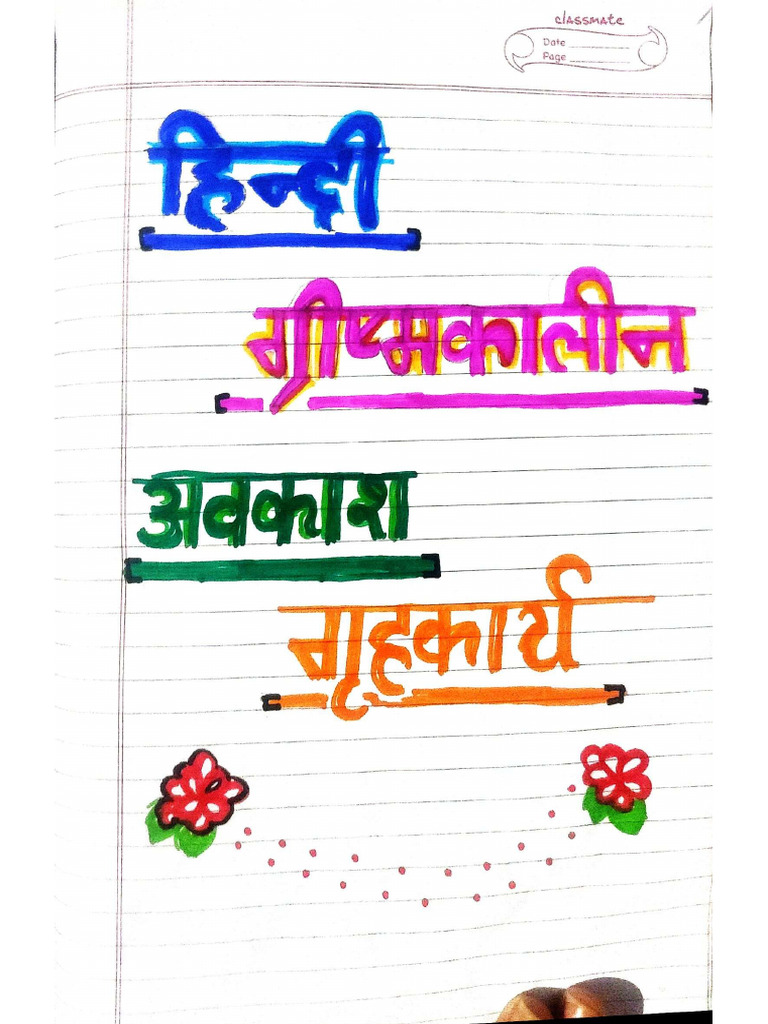 classmate
Date
Page
हिन्दी
ग्रीष्मकालीन
अवकाश
गृहकार्य